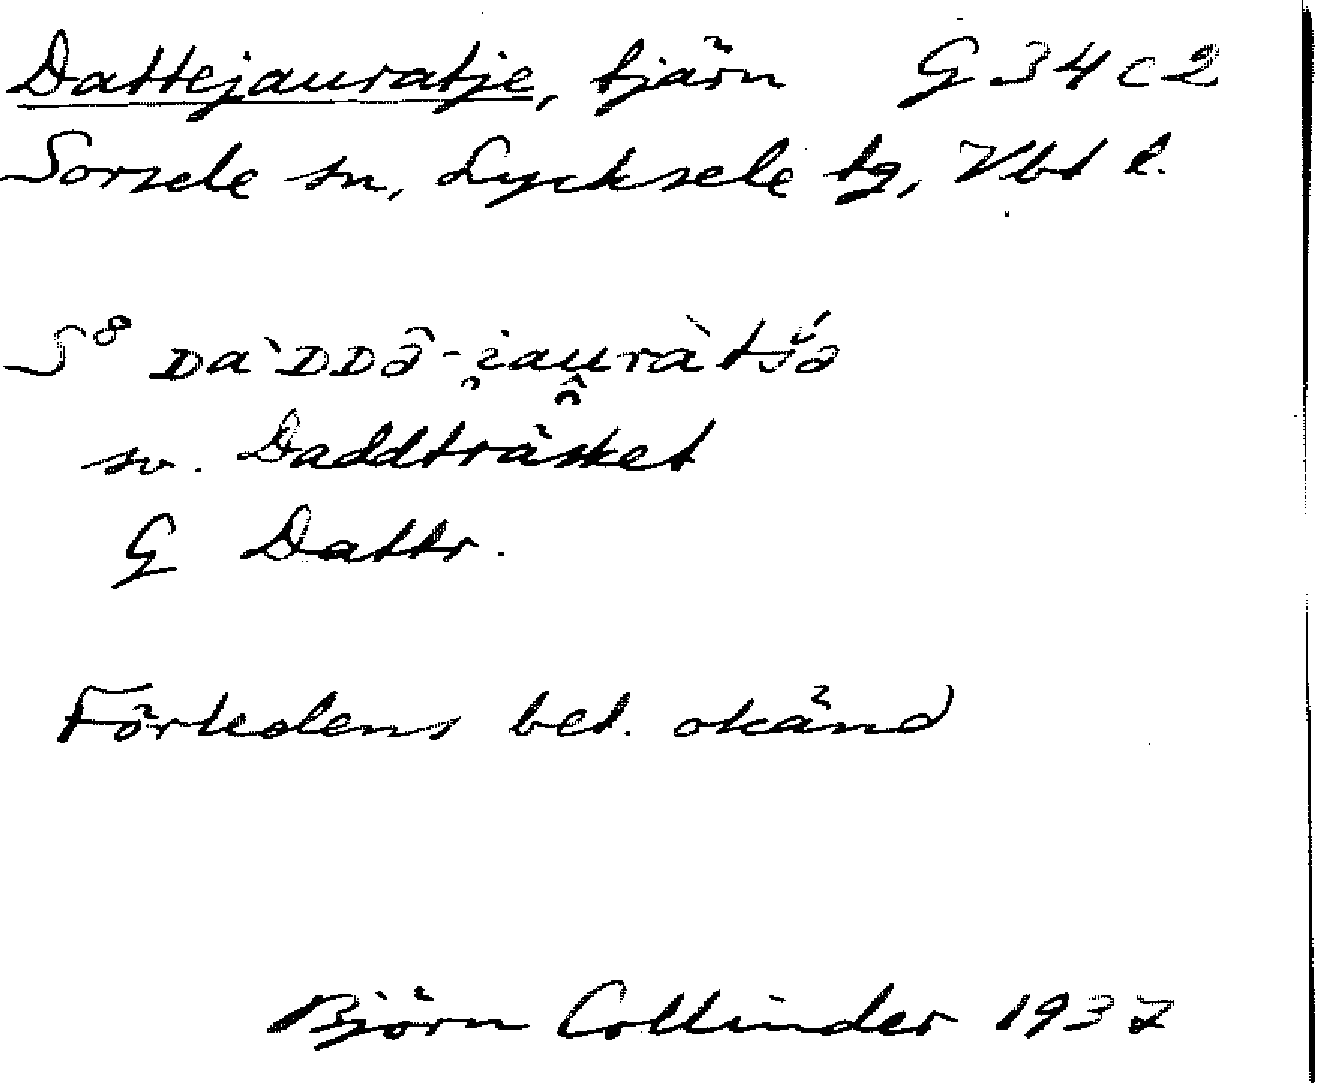 Dattejauratje, tjärn G 34 c 2
Sorsele sn, Lycksele tg, Vbt l.
S⁸ ᴅaˋᴅᴅə̂-i̯au̯ràtśə
sv. Daddträsket
G Dattr.
Förledens bet. okänd
Björn Collinder 1937